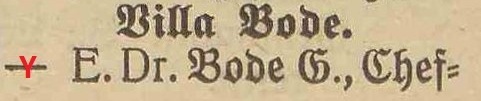 Villa Bode.
— Y E. Dr. Bode G., Chef=